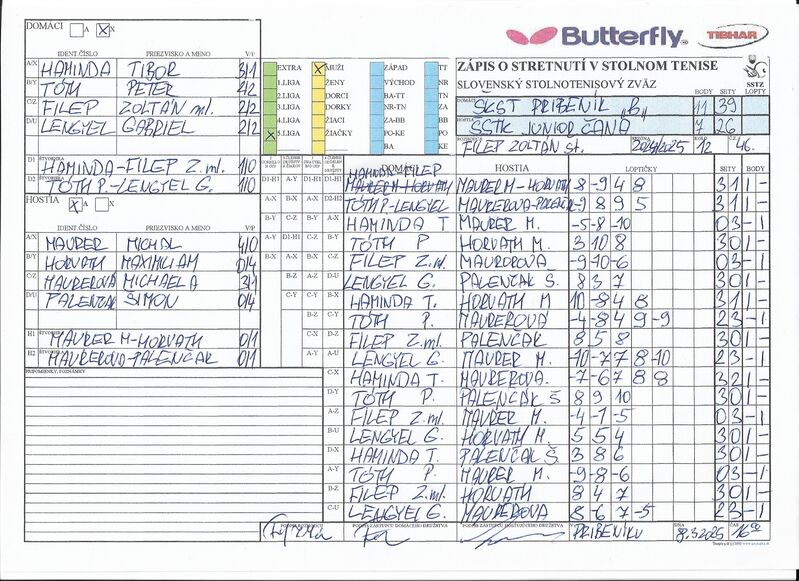 DOMÁCI A X
Butterfly TIBHAR
IDENT.ČÍSLO PRIEZVISKO A MENO V/P
A/X HAMINDA TIBOR 3/1
B/Y TÓTH PETER
C/Z FILEP ZOLTÁN ml. 2/2
D/U LENGYEL GABRIEL 2/2
EXTRA X MUŽI ZÁPAD TT
1.LIGA ŽENY VÝCHOD NR
2.LIGA DORCI BA-TT TN
3.LIGA DORKY NR-TN ZA
4.LIGA ŽIACI ZA-BB BB
X 5.LIGA ŽIAČKY PO-KE PO
BA KE
ZÁPIS O STRETNUTÍ V STOLNOM TENISE
SLOVENSKÝ STOLNOTENISOVÝ ZVÄZ SSTZ
BODY SETY LOPTY
DOMÁCI ŠKST PRIBENÍK "B" 11 39
HOSTIA SSTK JUNIOR ČAŇA 7 26
FILEP ZOLTÁN st. 2024/2025 12 46.
D1 HAMINDA-FILEP Z.ml. 1/0
D2 TÓTH P-LENGYEL G. 1/0
HOSTIA X
IDENT.ČÍSLO PRIEZVISKO A MENO V/P
A/X MAURER MICHAL 4/0
B/Y HORVATH MAXIMILIAM 0/4
C/Z MAUREROVA MICHAELA 3/1
D/U PALENČAK ŠIMON 0/4
H1 MAURER M-HORVATH 0/1
H2 MAUREROVA-PALENČAK 0/1
PRIPOMIENKY, POZNÁMKY
DOMÁCI HOSTIA LOPTIČKY SETY BODY
HAMINDA-FILEP MAURER M-HORVATH 8 -9 4 8 3 1 1 -
TÓTH P.-LENGYEL MAUREROVA-PALENČAK -9 8 9 5 3 1 1 -
HAMINDA T MAURER M. -5 -8 -10 0 3 - 1
TÓTH P HORVATH M. 3 10 8 3 0 1 -
FILEP Z.ml. MAUREROVA -9 -10 -6 0 3 - 1
LENGYEL G. PALENČAK Š. 8 3 7 3 0 1 -
HAMINDA T. HORVATH M 10 -8 4 8 3 1 1 -
TÓTH P. MAUREROVA -4 -8 4 9 -9 2 3 - 1
FILEP Z.ml. PALENČAK 8 5 8 3 0 1 -
LENGYEL G. MAURER M. -10 -7 7 8 -10 2 3 - 1
HAMINDA T. MAUREROVA. -7 -6 7 8 8 3 2 1 -
TÓTH P. PALENČAK Š 8 9 10 3 0 1 -
FILEP Z.ml. MAURER M. -4 -1 -5 0 3 - 1
LENGYEL G. HORVATH M. 5 5 4 3 0 1 -
HAMINDA T. PALENČAK Š. 3 8 6 3 0 1 -
TÓTH P. MAURER M. -9 -8 -6 0 3 - 1
FILEP Z.ml. HORVATH 8 4 7 3 0 1 -
LENGYEL G. MAUREROVA 8 -6 7 -5 2 3 - 1
PODPIS ROZHODCU PODPIS ZÁSTUPCU DOMÁCEHO DRUŽSTVA PODPIS ZÁSTUPCU HOSŤUJÚCEHO DRUŽSTVA V PRIBENÍKU DŇA 8.3.2025 ČAS 16